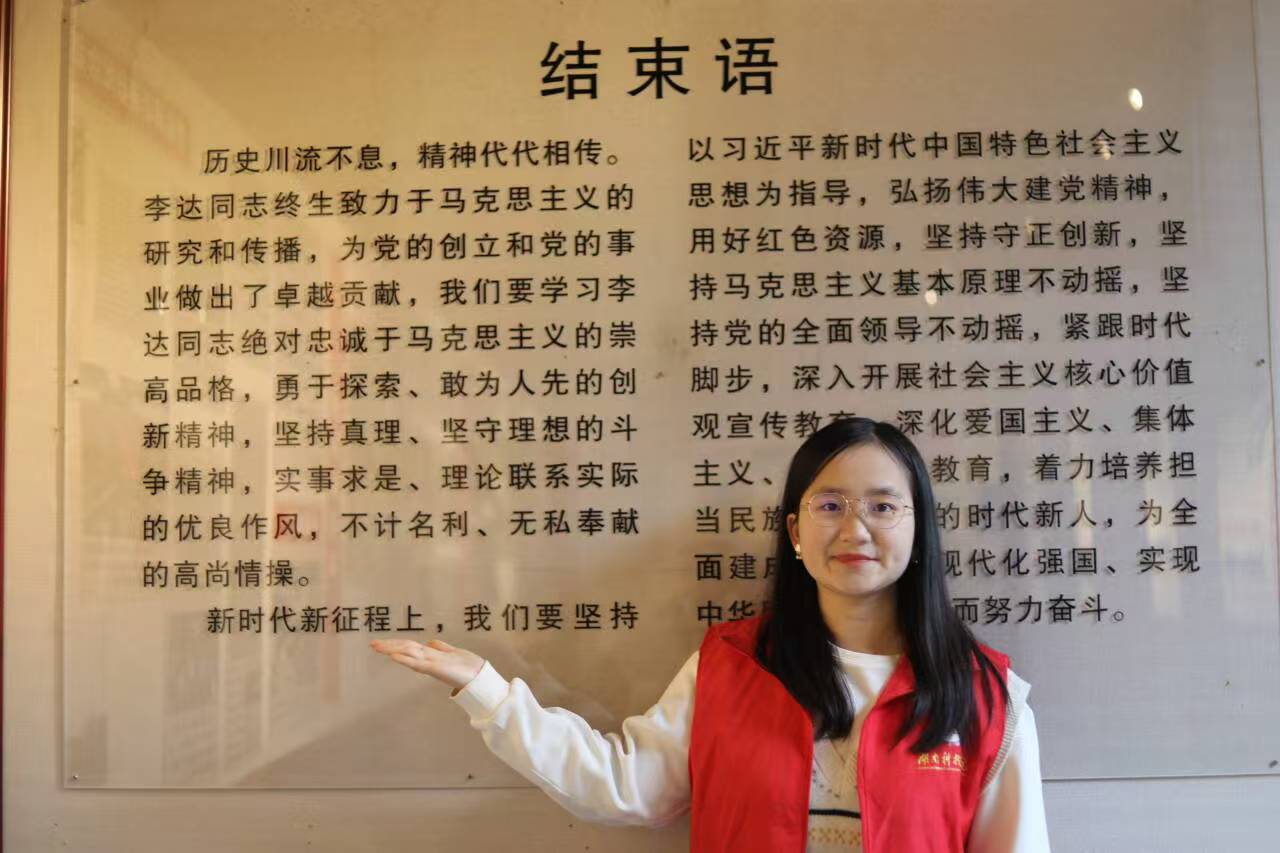 结束语
历史川流不息，精神代代相传。
李达同志终生致力于马克思主义的
研究和传播，为党的创立和党的事
业做出了卓越贡献，我们要学习李
达同志绝对忠诚于马克思主义的崇
高品格，勇于探索、敢为人先的创
新精神，坚持真理、坚守理想的斗
争精神，实事求是、理论联系实际
的优良作风，不计名利、无私奉献
的高尚情操。
新时代新征程上，我们要坚持
以习近平新时代中国特色社会主义
思想为指导，弘扬伟大建党精神，
用好红色资源，坚持守正创新，坚
持马克思主义基本原理不动摇，坚
持党的全面领导不动摇，紧跟时代
脚步，深入开展社会主义核心价值
观宣传教育，深化爱国主义、集体
主义、教育，着力培养担
当民族的时代新人，为全
面建现代化强国、实现
中华而努力奋斗。
湖南科技